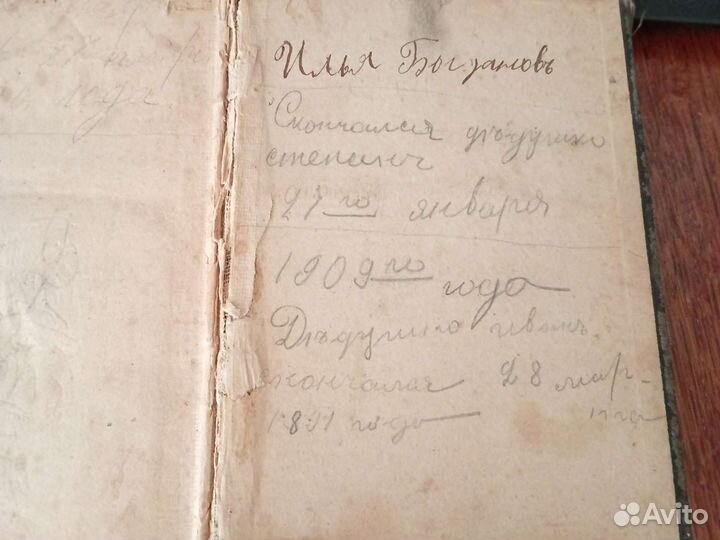 года
Илья Богдановъ
Скончался дѣдушка
степанъ
27го января
1909го
года
Дѣдушка иванъ
скончался 28 мар-
та
1891 года
Avito